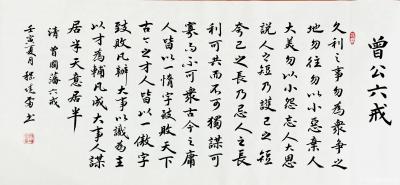 曾公六戒
久利之事勿為衆争之
地勿往勿以小惡棄人
大美勿以小怨忘人大恩
說人之短乃護己之短
夸己之長乃忌人之長
利可共而不可獨謀可
寡而不可衆古今之庸
人皆以一惰字致敗天下
古今之才人皆以一傲字
致敗凡辦大事以識為主
以才為輔凡成大事人謀
居半天意居半
清曾國藩六戒
壬寅夏月